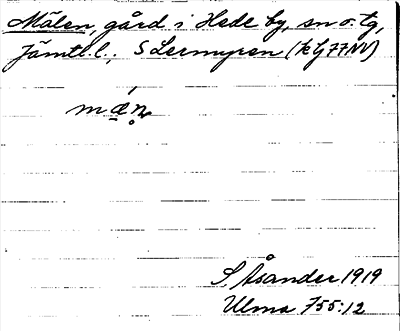 Målen, gård i Hede by, sn o. tg,
Jämtl. l., S Lermyren (k Lj77NV)
mæ̀n
S Åsander 1919
Ulma 755:12